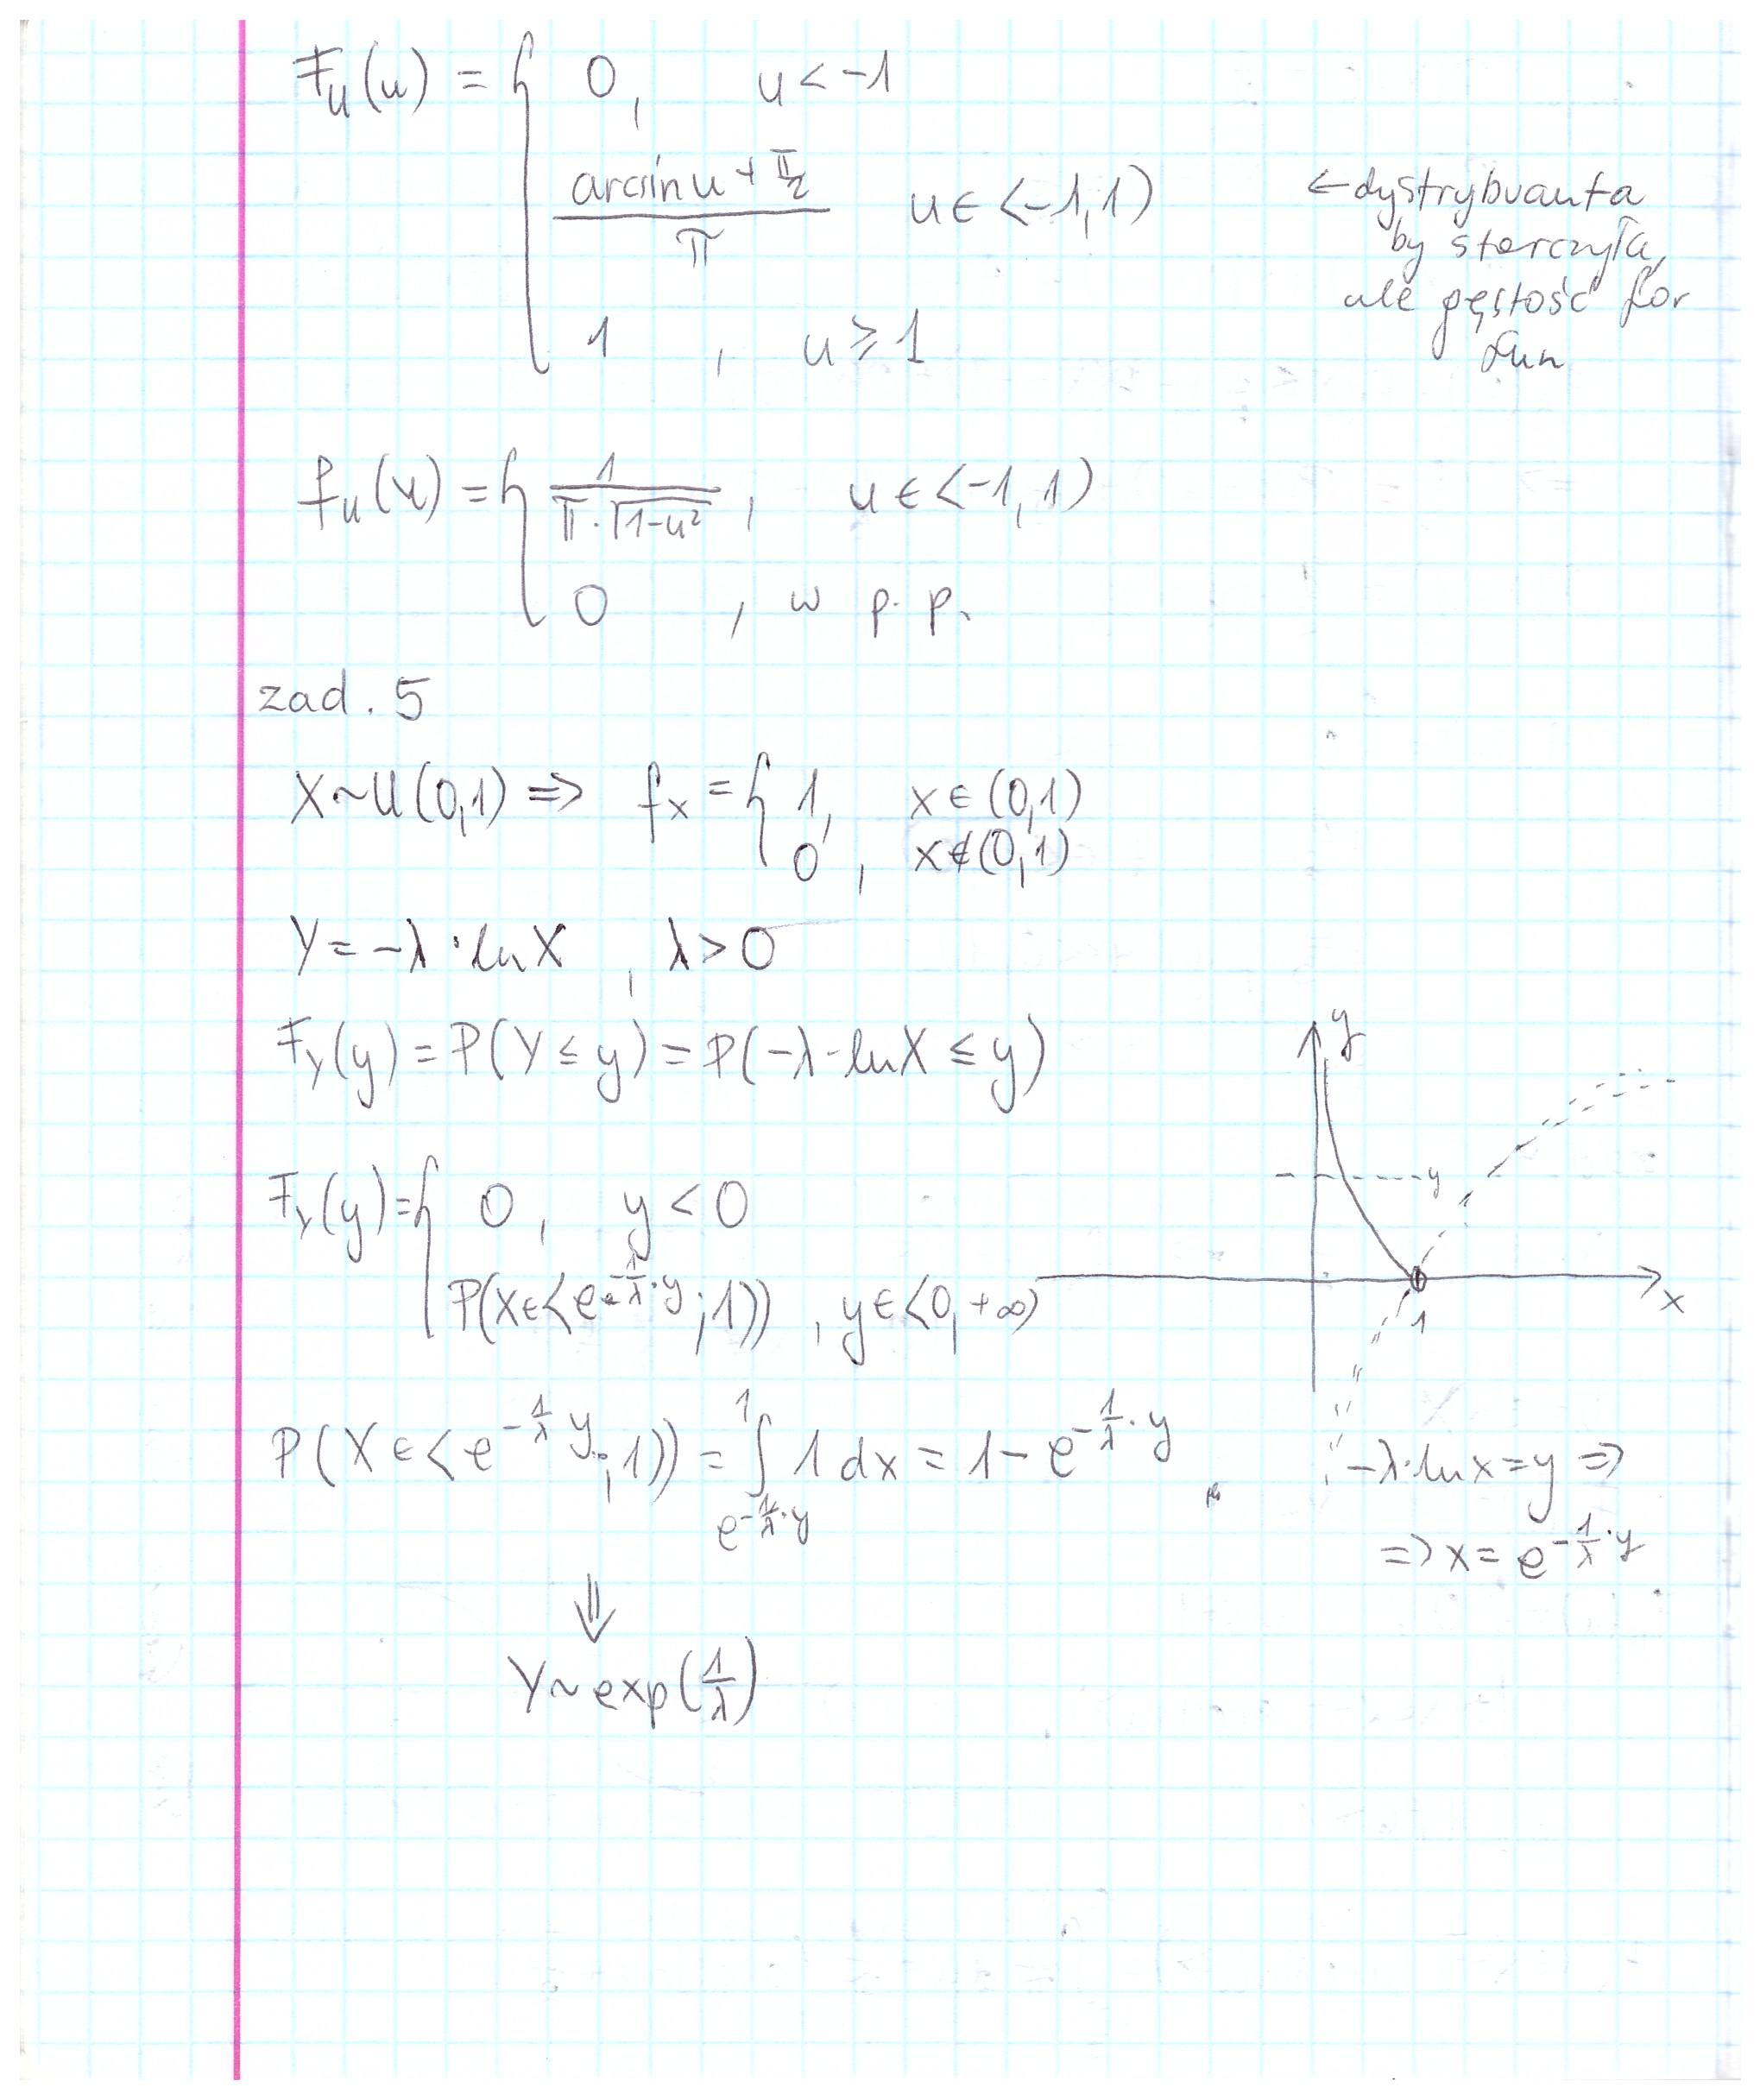 F_u(u) = { 0, u < -1
(arcsin u + π/2)/π u ∈ <-1,1)
1 , u ⩾ 1
← dystrybuanta
by starczyła,
ale gęstość for
fun
f_u(u) = { 1/(π·√(1-u²)) , u ∈ <-1,1)
0 , w p.p.
zad. 5
X~U(0,1) => f_X = { 1, x ∈ (0,1)
0 , x ∉ (0,1)
Y = -λ·lnX , λ > 0
F_Y(y) = P(Y ≤ y) = P(-λ·lnX ≤ y)
F_Y(y) = { 0, y < 0
P(X ∈ <e^{-1/λ·y};1)) , y ∈ <0,+∞)
y
y
x
1
P(X ∈ <e^{-1/λ y};1)) = ∫_{e^{-1/λ·y}}^{1} 1 dx = 1 - e^{-1/λ·y}
-λ·lnx = y =>
=> x = e^{-1/λ·y}
⇓
Y~exp(1/λ)